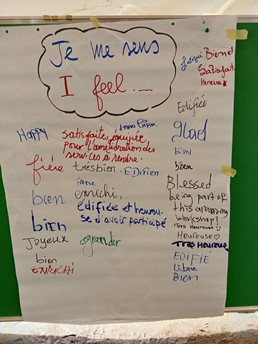 Je me sens
I feel....
Bien et
Satisfaite
Heureux
Edifiée
Happy
satisfaite, équipée
pour l'amélioration des
services à rendre.
glad
bien
fière très bien
bien
Blessed
being part of
this amazing
workshop!
bien enrichi,
édifiée et heureu-
se d'avoir participé
bien
Très Heureux
Heureuse
Très Heureux
Joyeux grandir
EDIFIE
bien
Libre
BIEN
ENRICHI